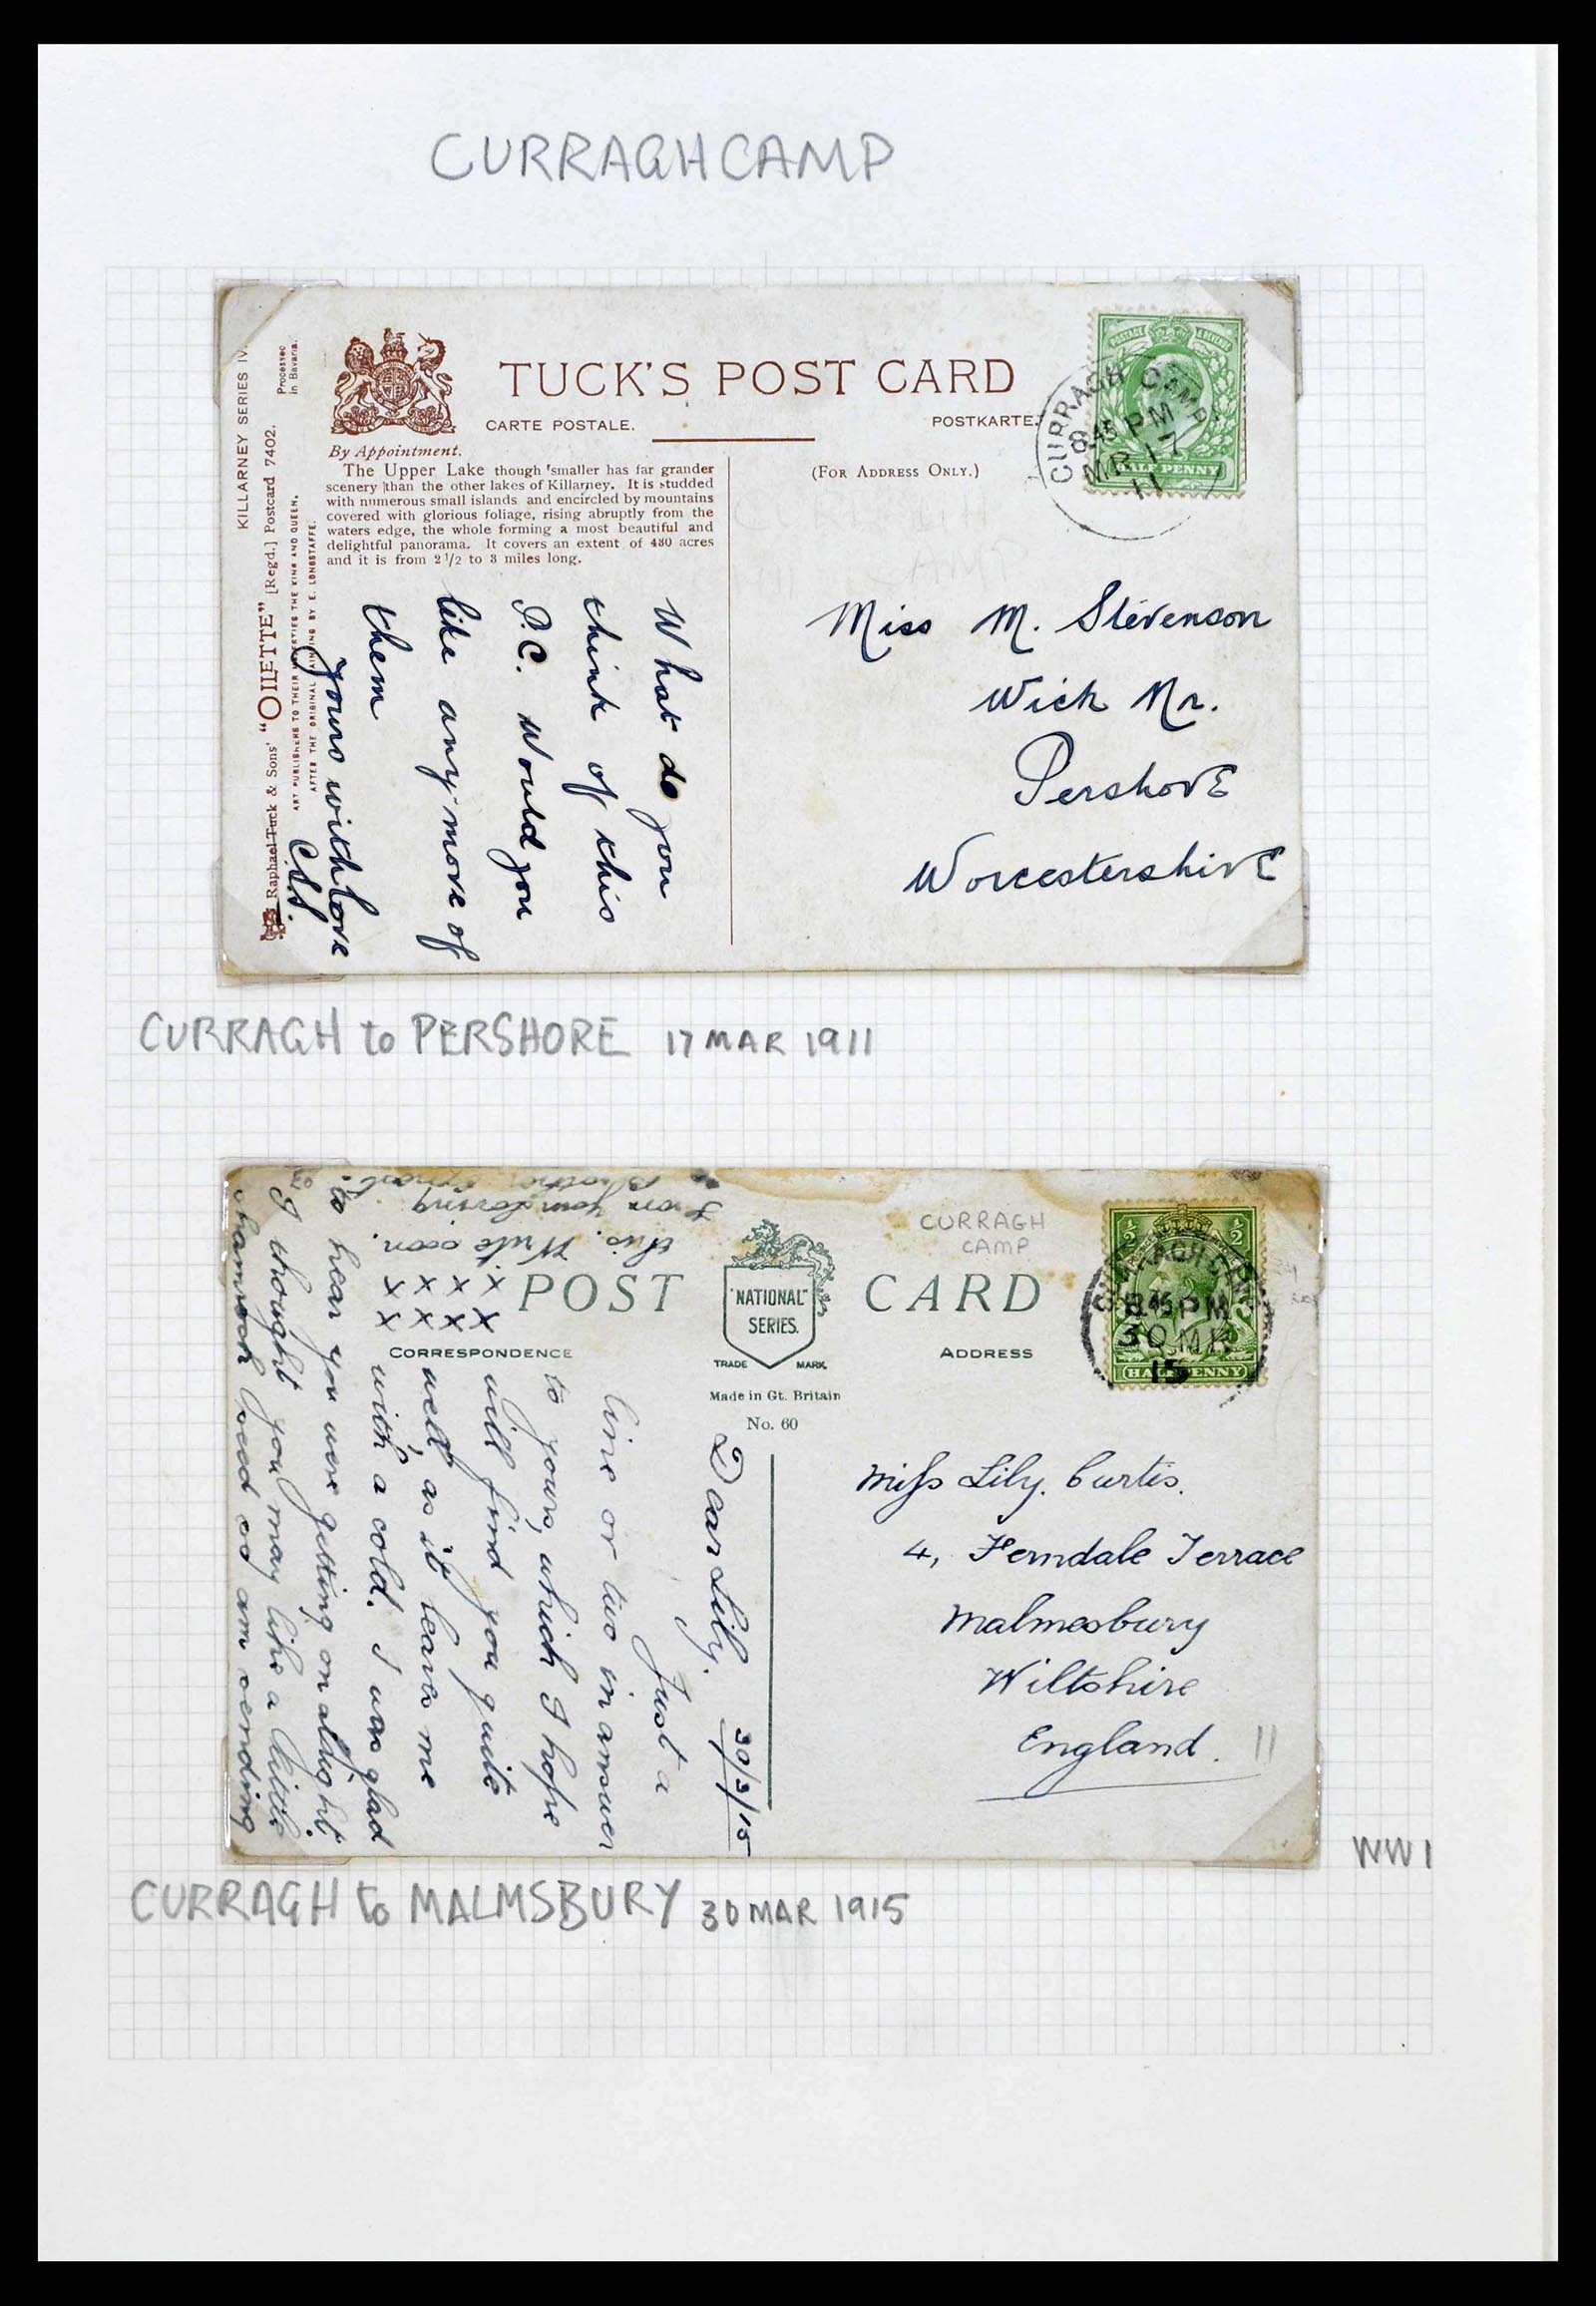 CURRAGH CAMP
KILLARNEY SERIES IV.
Processed
in Bavaria.
Raphael Tuck & Sons' "OILETTE" [Regd.] Postcard 7402.
ART PUBLISHERS TO THEIR MAJESTIES THE KING AND QUEEN.
AFTER THE ORIGINAL PAINTING BY E. LONGSTAFFE.
By Appointment.
TUCK'S POST CARD
CARTE POSTALE.
POSTKARTE.
The Upper Lake though smaller has far grander
scenery than the other lakes of Killarney. It is studded
with numerous small islands and encircled by mountains
covered with glorious foliage, rising abruptly from the
waters edge, the whole forming a most beautiful and
delightful panorama. It covers an extent of 480 acres
and it is from 2 1/2 to 3 miles long.
(FOR ADDRESS ONLY.)
POSTAGE & REVENUE
HALF PENNY
CURRAGH CAMP
8.45 PM
MR 17
11
What do you
think of this
P.C. Would you
like any more of
them
yours with love
C.S.S.
Miss M. Stevenson
Wick Nr.
Pershore
Worcestershire
CURRAGH to PERSHORE 17 MAR 1911
POST CARD
"NATIONAL"
SERIES.
TRADE MARK
CORRESPONDENCE
ADDRESS
Made in Gt. Britain
No. 60
CURRAGH
CAMP
½ ½
HALF PENNY
8.45 PM
30 MR
15
30/3/15
Dear Lily.
Just a
line or two in answer
to yours, which I hope
will find you quite
well, as it leaves me
with a cold. I was glad
to hear you were getting on alright.
I thought you may like a little
shamrock seed so am sending
this. Write soon.
from your loving
Brother
x x x x
x x x x
Miss Lily. Curtis.
4, Ferndale Terrace
Malmesbury
Wiltshire
England.
11
WW1
CURRAGH to MALMSBURY 30 MAR 1915